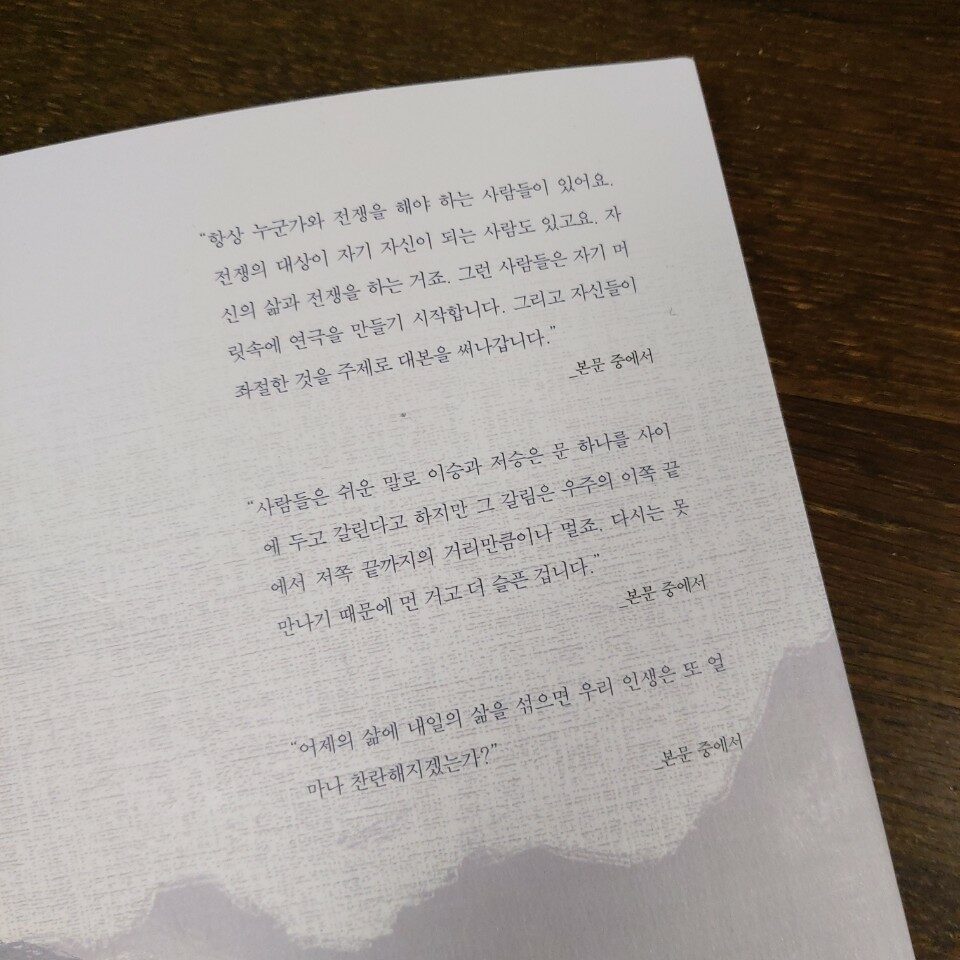 “항상 누군가와 전쟁을 해야 하는 사람들이 있어요.
전쟁의 대상이 자기 자신이 되는 사람도 있고요. 자
신의 삶과 전쟁을 하는 거죠. 그런 사람들은 자기 머
릿속에 연극을 만들기 시작합니다. 그리고 자신들이
좌절한 것을 주제로 대본을 써나갑니다.”
_본문 중에서
“사람들은 쉬운 말로 이승과 저승은 문 하나를 사이
에 두고 갈린다고 하지만 그 갈림은 우주의 이쪽 끝
에서 저쪽 끝까지의 거리만큼이나 멀죠. 다시는 못
만나기 때문에 먼 거고 더 슬픈 겁니다.”
_본문 중에서
“어제의 삶에 내일의 삶을 섞으면 우리 인생은 또 얼
마나 찬란해지겠는가?”
_본문 중에서